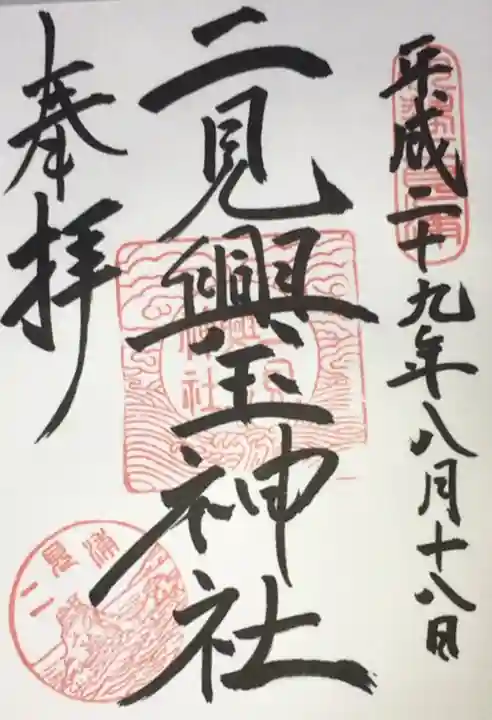 平成二十九年八月十八日
二見興玉神社
奉拝
二見浦